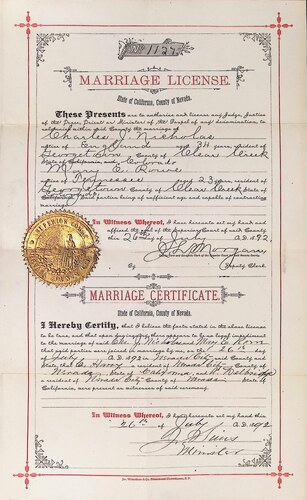 No. 1127
MARRIAGE LICENSE.
State of California, County of Nevada.
These Presents are to authorize and license any Judge, Justice
of the Peace, Priest or Minister of the Gospel of any denomination, to
solemnize within said County the marriage of
Charles J. Nicholas
native of England aged 34 years, resident of
Georgetown County of Clear Creek
State of Colorado and
Mary E. Rowe
native of Tennessee aged 23 years, resident of
Georgetown County of Clear Creek State of
said parties being of sufficient age and capable of contracting
marriage.
In Witness Whereof, I have hereunto set my hand and
affixed the seal of the Superior Court of said County, this
26th day of July A.D. 1892.
Morgan
By Deputy Clerk
MARRIAGE CERTIFICATE.
State of California, County of Nevada.
I Hereby Certify, that I believe the facts stated in the above license
to be true, and that upon due inquiry there appears to be no legal impediment
to the marriage of said Chas J. Nicholas and Mary E. Rowe
that said parties were joined in marriage by me, on the 26th day
of July A.D. 1892 in Nevada City, County of Nevada
and State that a resident of Nevada City County of
Nevada, State of California, and
a resident of Nevada City County of Nevada State of
California, were present as witnesses of said ceremony.
In Witness Whereof, I have hereunto set my hand this
26th day of July A.D. 1892
J. Sims
Minister